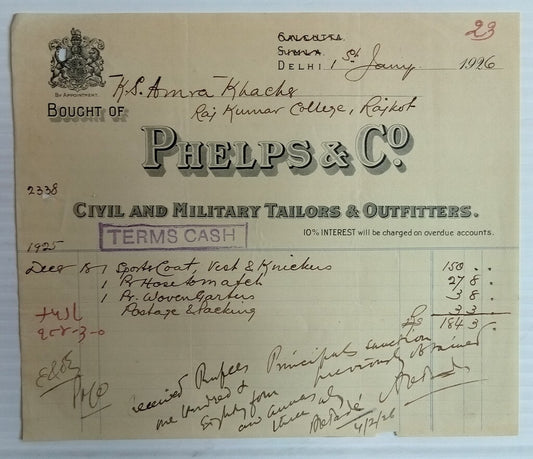 23
CALCUTTA.
SIMLA.
DELHI 1st Jany. 1926
BY APPOINTMENT.
K.S. Amra Khacher
BOUGHT OF
Raj Kumar College, Rajkot
PHELPS & Co.
2338
CIVIL AND MILITARY TAILORS & OUTFITTERS.
TERMS CASH
10% INTEREST will be charged on overdue accounts.
1925
Decr 18 1 Sports Coat, Vest & Knickers 150 . .
1 Pr Hose to match 27 8 .
1 Pr. Woven Garters 3 8 .
Postage & Packing 3 3 .
Rs 184 3 .
૧૮૪-૩-૦
E&OE
P&Co
Received Rupees
one hundred &
Eighty four
and annas
three only
4/2/26
Principal's sanction
previously obtained